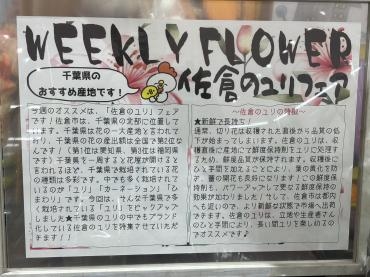 WEEKLY FLOWER
千葉県の
おすすめ産地です！
佐倉のユリフェア
今週のオススメは、「佐倉のユリ」フェア
です！佐倉市は、千葉県の北部に位置していま
す。千葉県は花の一大産地と言われて
おり、千葉県の花の産出額は全国で第2位な
んです！（第1位は愛知県、第3位は福岡県
です）千葉県を一周すると花屋が開けると
言われるほど、千葉県で栽培されている花
の種類は多彩です。中でも多く栽培されて
いるのが「ユリ」「カーネーション」「ひ
まわり」です。今回は、そんな千葉県で多
く栽培されている「ユリ」をピックアップ
しました★千葉県のユリの中でもブランド
化している佐倉のユリを特集させていただ
きます！！
～佐倉のユリの特徴～
★新鮮で長持ち！
通常、切り花は収穫された直後から品質の低
下が始まってしまいます。佐倉のユリは、収
穫直後に産地にて鮮度保持剤をユリに処理す
るため、鮮度品質が保持されます。収穫後に
ひと手間を加えることにより、葉の黄化を防
ぎ、蕾の開花も良好になります！この鮮度保
持剤も、パワーアップして更なる鮮度保持の
効果が加わりました！そして、佐倉市は都内
へも近いので、より新鮮な状態で市場へ出荷
できます。佐倉のユリは、立地や生産者さん
のひと手間により、長い間ユリを楽しめるの
でオススメです♪